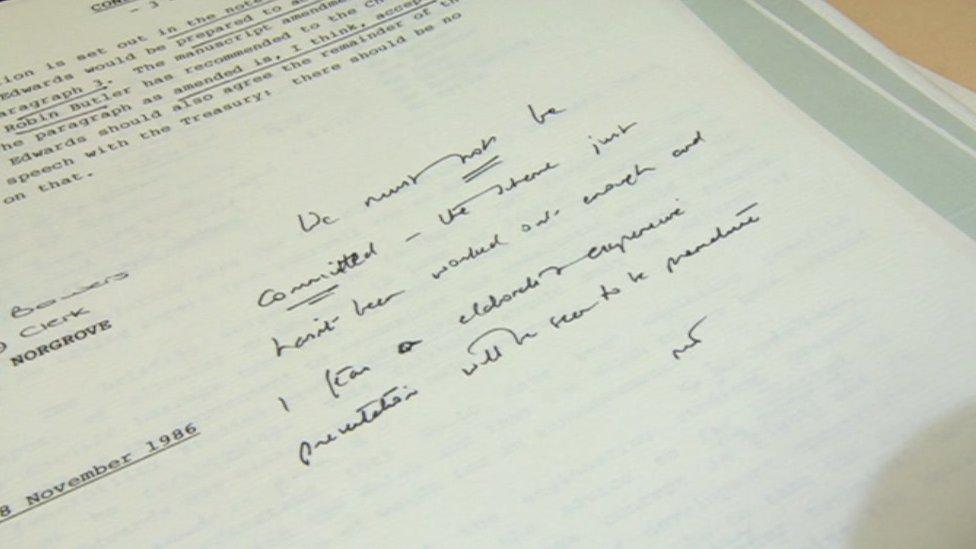 CON
- 3
tion is set out in the note
Edwards would be prepared to
aragraph 3. The manuscript amendme
Robin Butler has recommended to the ch
he paragraph as amended is, I think, accep
Edwards should also agree the remainder of th
speech with the Treasury: there should be no
on that.
We must not be
committed - the scheme just
hasn't been worked out enough and
I fear a elaborate & expensive
presentation will be seen to be premature
mt
Bowers
Clerk
NORGROVE
8 November 1986